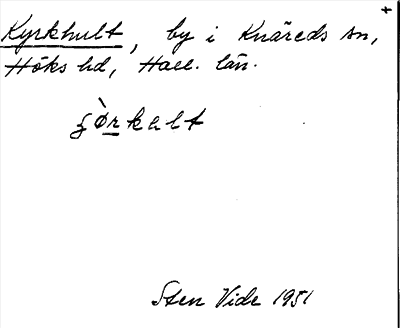 Kyrkhult, by i Knäreds sn,
Höks hd, Hall. län.
Sten Vide 1951